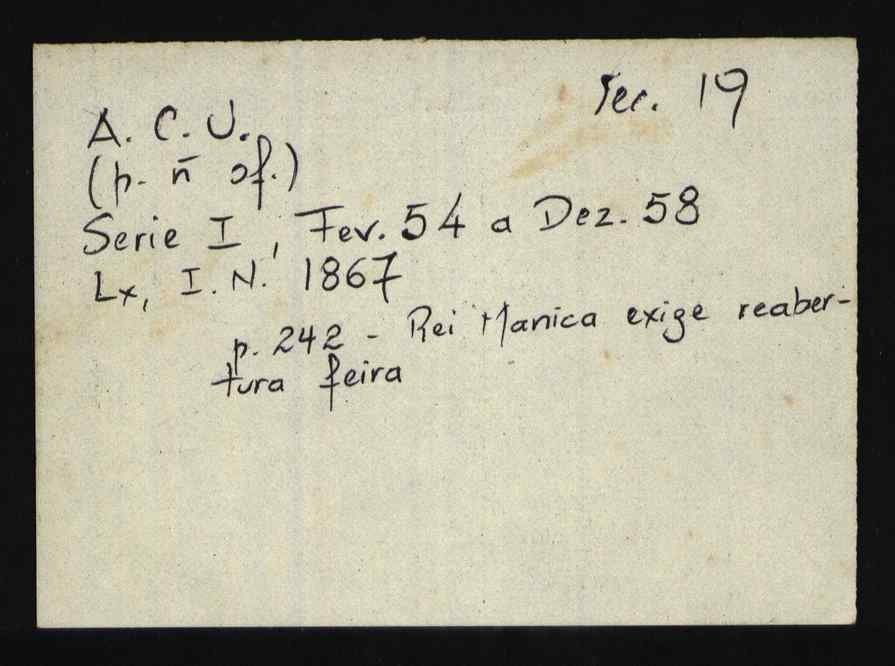 Sec. 19
A. C. U.
(p. ñ of.)
Serie I, Fev. 54 a Dez. 58
Lx, I. N. 1867
p. 242 - Rei Manica exige reaber-
tura feira